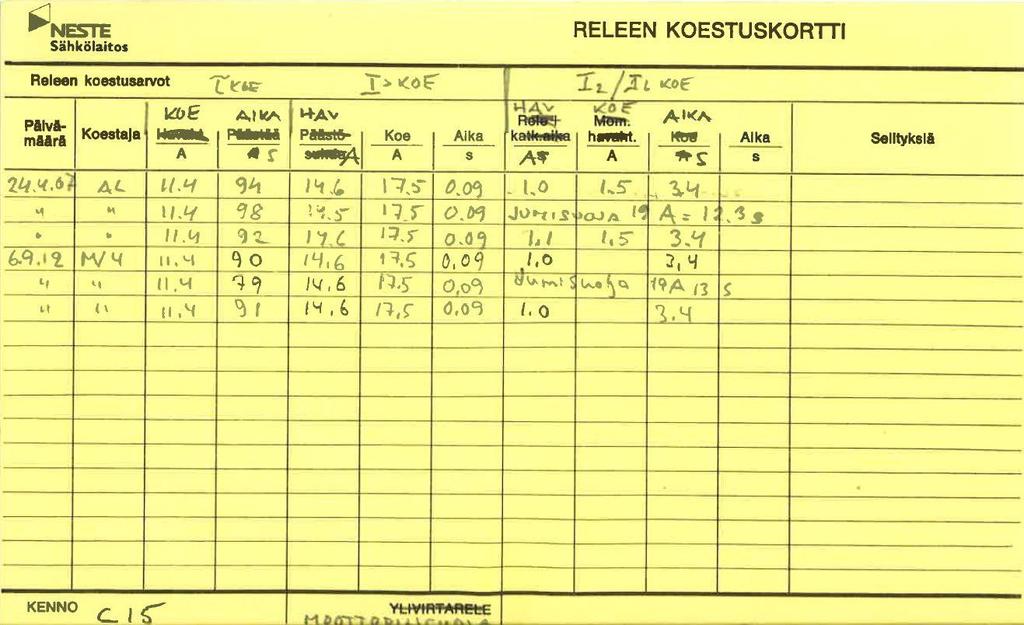 NESTE
Sähkölaitos
RELEEN KOESTUSKORTTI
Releen koestusarvot τ KOE I> KOE I2/IL KOE
Päivä-määrä Koestaja KOE A AIKA S HAV A Koe A Aika s HAV Rele katk.aika A KOE Mom. havaht. A AIKA Koe S Aika s Selityksiä
24.4.07 AL 11.4 94 14.6 17.5 0.09 1.0 1.5 3.4
" " 11.4 98 14.5 17.5 0.09 JUMISUOJA 19 A = 12.3 s
" " 11.4 92 14.6 17.5 0.09 1,1 1,5 3.4
6.9.12 M/4 11.4 90 14,6 17,5 0,09 1.0 3,4
" " 11,4 79 14,6 17.5 0,09 Jumisuoja 19A 13 s
" " 11,4 91 14,6 17,5 0.09 1.0 3.4
KENNO C15 YLIVIRTARELE